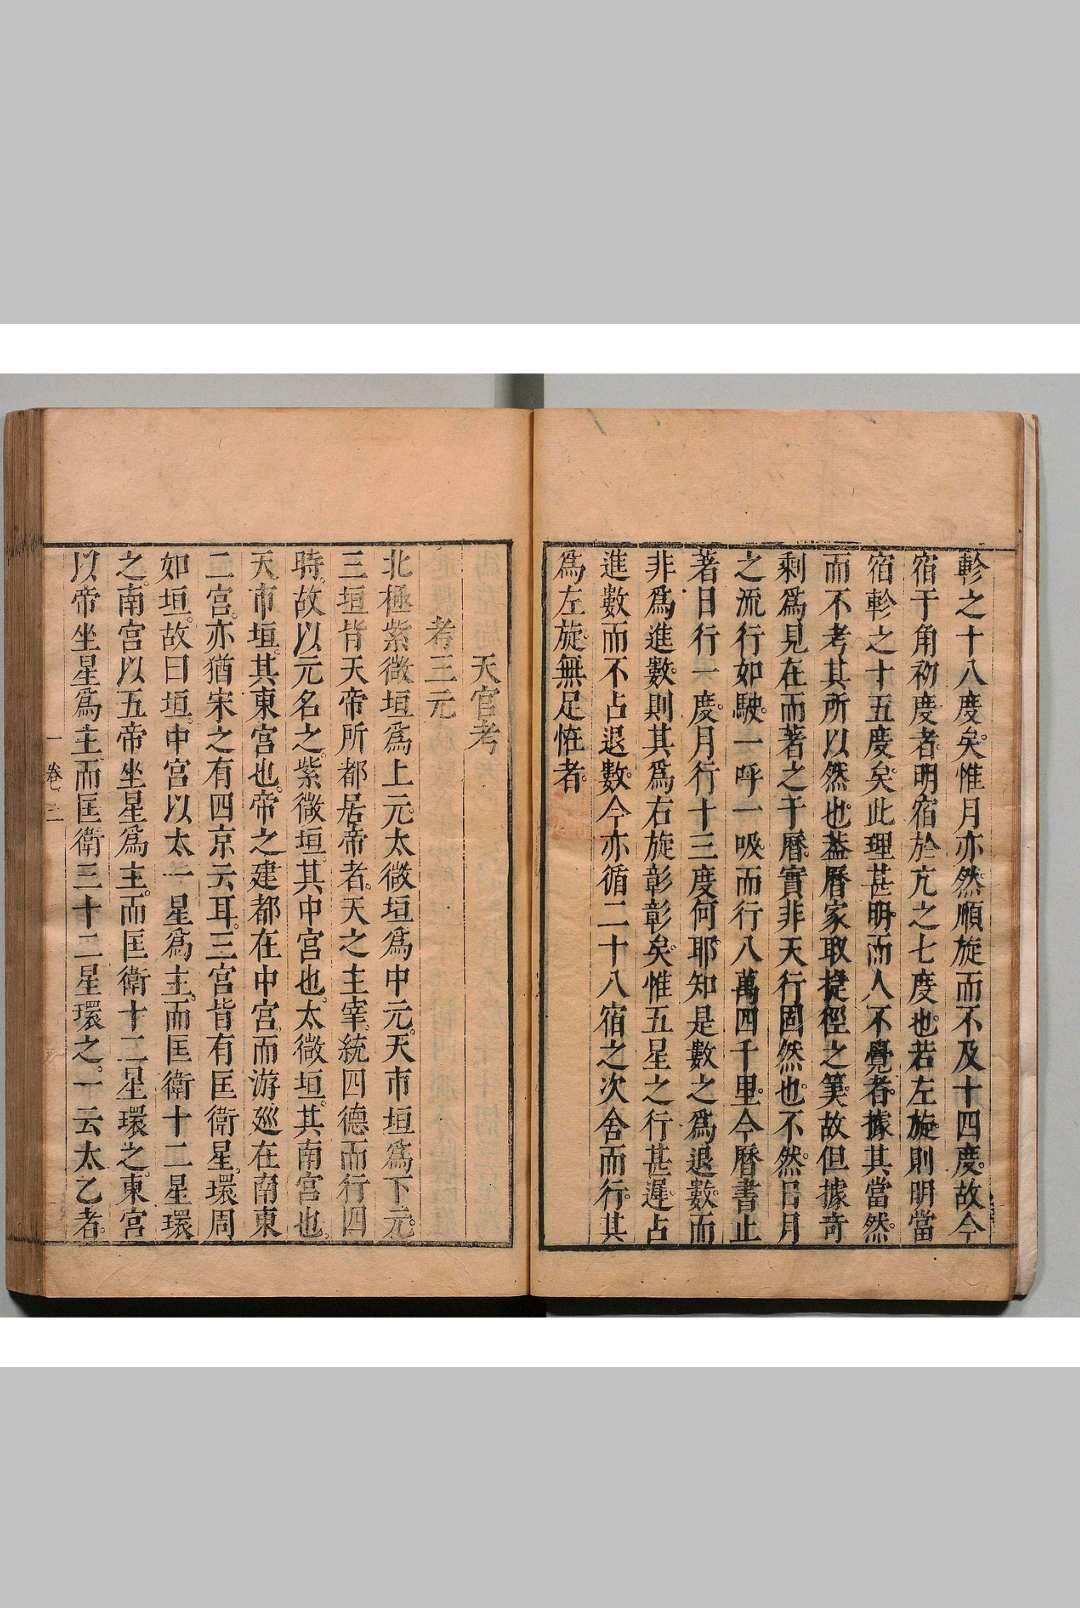 軫之十八度矣惟月亦然順旋而不及十四度故今
宿于角初度者明宿於亢之七度也若左旋則明當
宿軫之十五度矣此理甚明而人不覺者據其當然
而不考其所以然也葢曆家取捷徑之筭故但據奇
剩爲見在而著之于曆實非天行固然也不然日月
之流行如駛一呼一吸而行八萬四千里今曆書止
著日行一度月行十三度何耶知是數之爲退數而
非爲進數則其爲右旋彰彰矣惟五星之行甚遲占
進數而不占退數今亦循二十八宿之次舍而行其
爲左旋無足恠者
天官考
考三元
北極紫微垣爲上元太微垣爲中元天市垣爲下元
三垣皆天帝所都居帝者天之主宰統四德而行四
時故以元名之紫微垣其中宮也太微垣其南宮也
天市垣其東宮也帝之建都在中宮而游廵在南東
二宮亦猶宋之有四京云耳三宮皆有匡衛星環周
如垣故曰垣中宮以太一星爲主而匡衛十二星環
之南宮以五帝坐星爲主而匡衛十二星環之東宮
以帝坐星爲主而匡衛三十二星環之一云太乙者
卷三